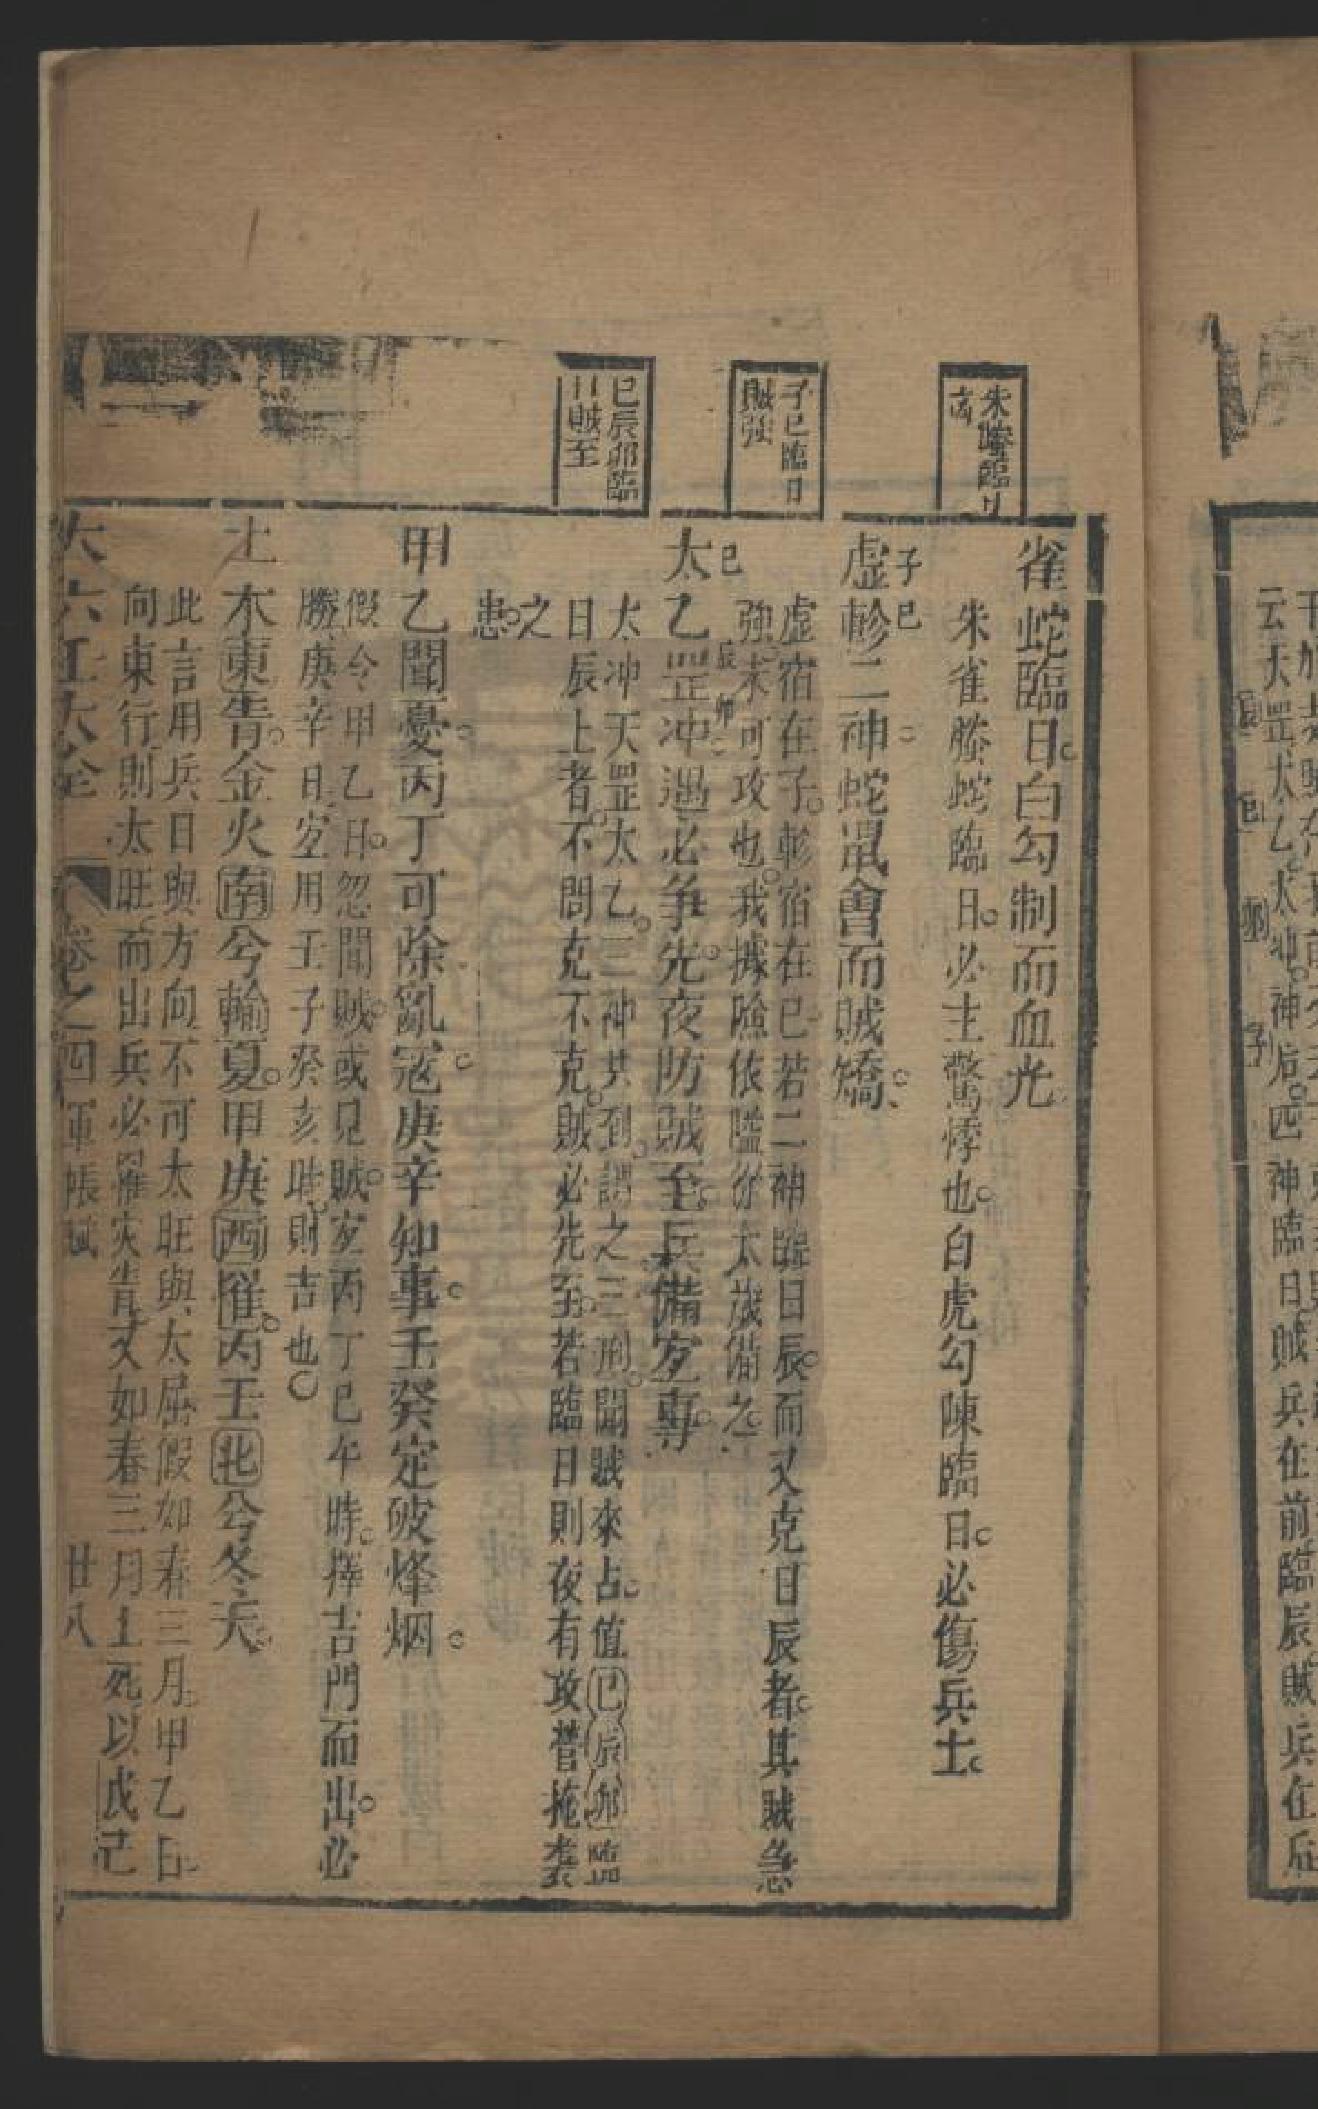 云天罡太乙太冲神后四神臨日賊兵在前臨辰賊兵在后
巳
卯
子
朱螣臨日
子巳臨日
賊強
巳辰卯臨
日賊至
雀蛇臨日白勾制而血光
朱雀螣蛇臨日必主驚悸也白虎勾陳臨日必傷兵士
子巳
虛軫二神蛇鼠會而賊驕
虛宿在子軫宿在巳若二神臨日辰而又克日辰者其賊急
強未可攻也我據險依隘從太歲備之
巳 辰 卯
太乙罡冲遇必爭先夜防賊至兵備宜專
太冲天罡太乙三神其到謂之三刑聞賊來占值巳辰卯臨
日辰上者不問克不克賊必先至若臨日則夜有攻營掩襲
之
患
甲乙聞憂丙丁可除亂寇庚辛知事壬癸定破烽烟
假令甲乙日忽聞賊或見賊宜丙丁巳午時擇吉門而出必
勝庚辛日宜用壬子癸亥時則吉也
土木東青金火南兮輪夏甲庚西催丙壬北兮冬天
此言用兵日與方向不可太旺與太屈假如春三月甲乙日
向東行則太旺而出兵必罹灾眚又如春三月土死以戊己
大六壬大全 卷之四 軍帳賦 廿八